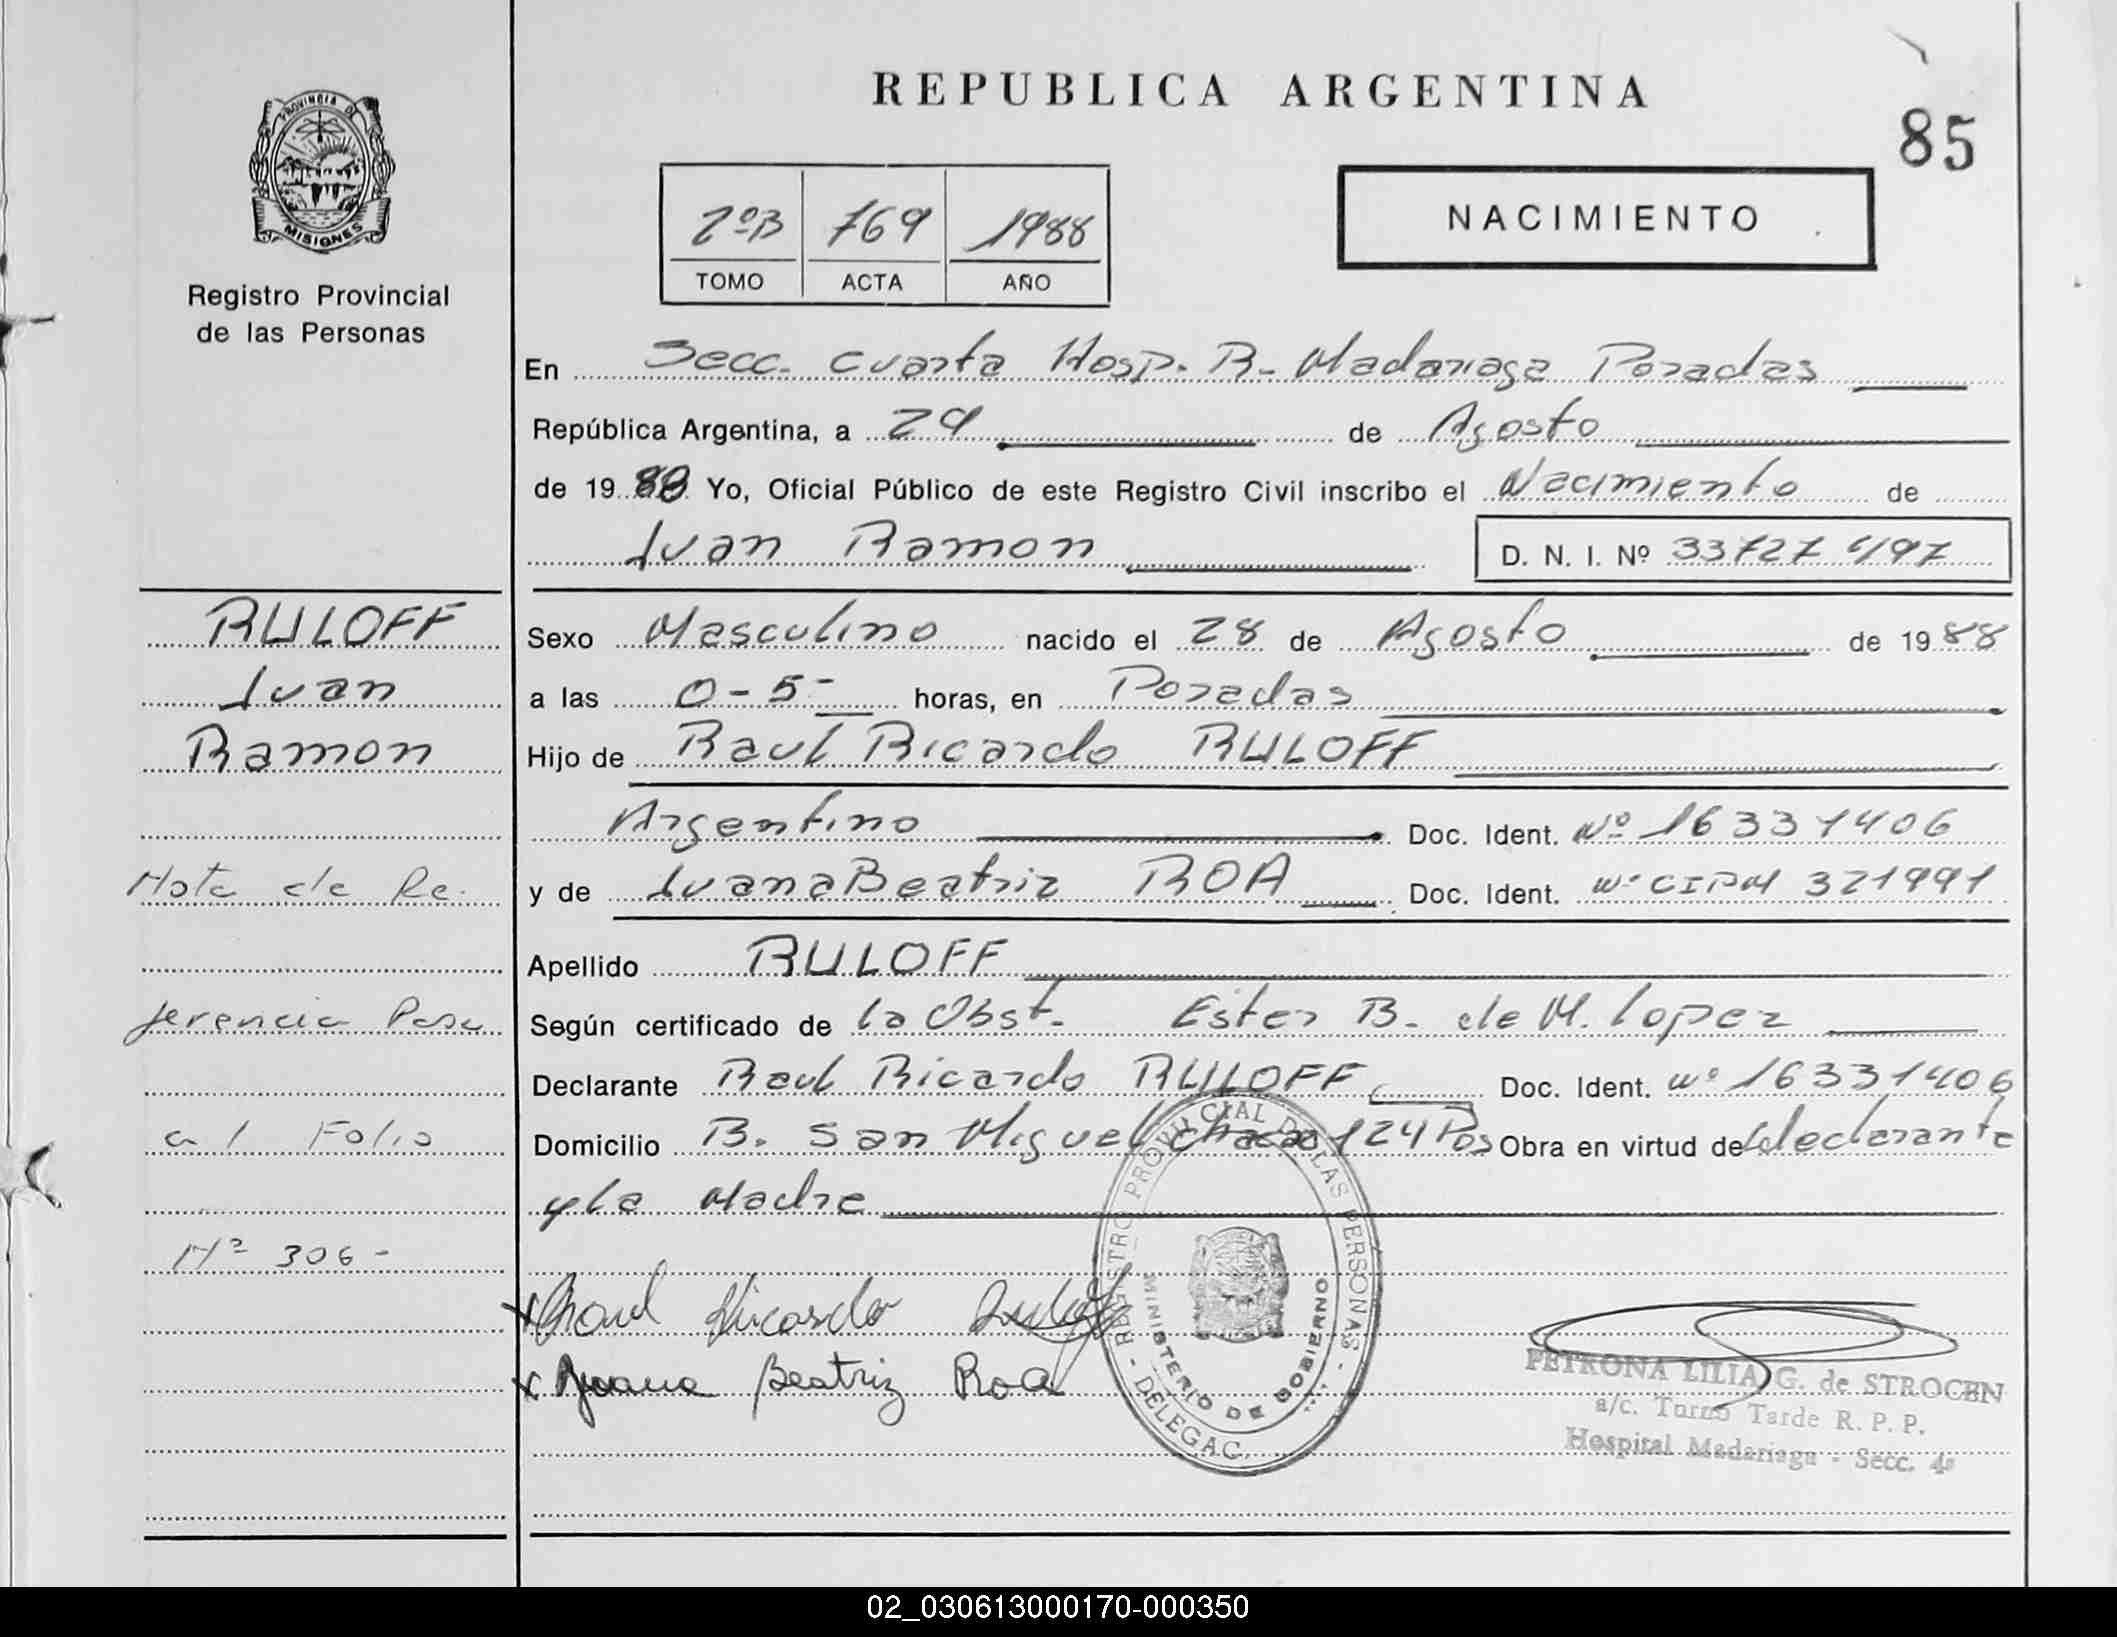 REPUBLICA ARGENTINA
85
PROVINCIA DE
MISIONES
Registro Provincial
de las Personas
2ºB 769 1988
TOMO ACTA AÑO
NACIMIENTO
En Secc. Cuarta Hosp. R. Madariaga Posadas
República Argentina, a 29 de Agosto
de 19 88 Yo, Oficial Público de este Registro Civil inscribo el Nacimiento de
Juan Ramon D. N. I. Nº 33727497
RULOFF
Juan
Ramon
Nota de Re.
ferencia Pasa
a l Folio
Nº 306-
Sexo Masculino nacido el 28 de Agosto de 19 88
a las 0-5- horas, en Posadas
Hijo de Raul Ricardo RULOFF
Argentino Doc. Ident. Nº 16331406
y de Juana Beatriz ROA Doc. Ident. Nº CIPM 321991
Apellido RULOFF
Según certificado de la Obst. Ester B. de M. Lopez
Declarante Raul Ricardo RULOFF Doc. Ident. Nº 16331406
Domicilio B. San Miguel chaca 124 Pos Obra en virtud de declarante
y la Madre
x Raul Ricardo Ruloff
x Juana Beatriz Roa
REGISTRO PROVINCIAL DE LAS PERSONAS - DELEGAC.
MINISTERIO DE GOBIERNO
PETRONA LILIA G. de STROCEN
a/c. Turno Tarde R. P. P.
Hospital Madariaga - Secc. 4ª
02_030613000170-000350